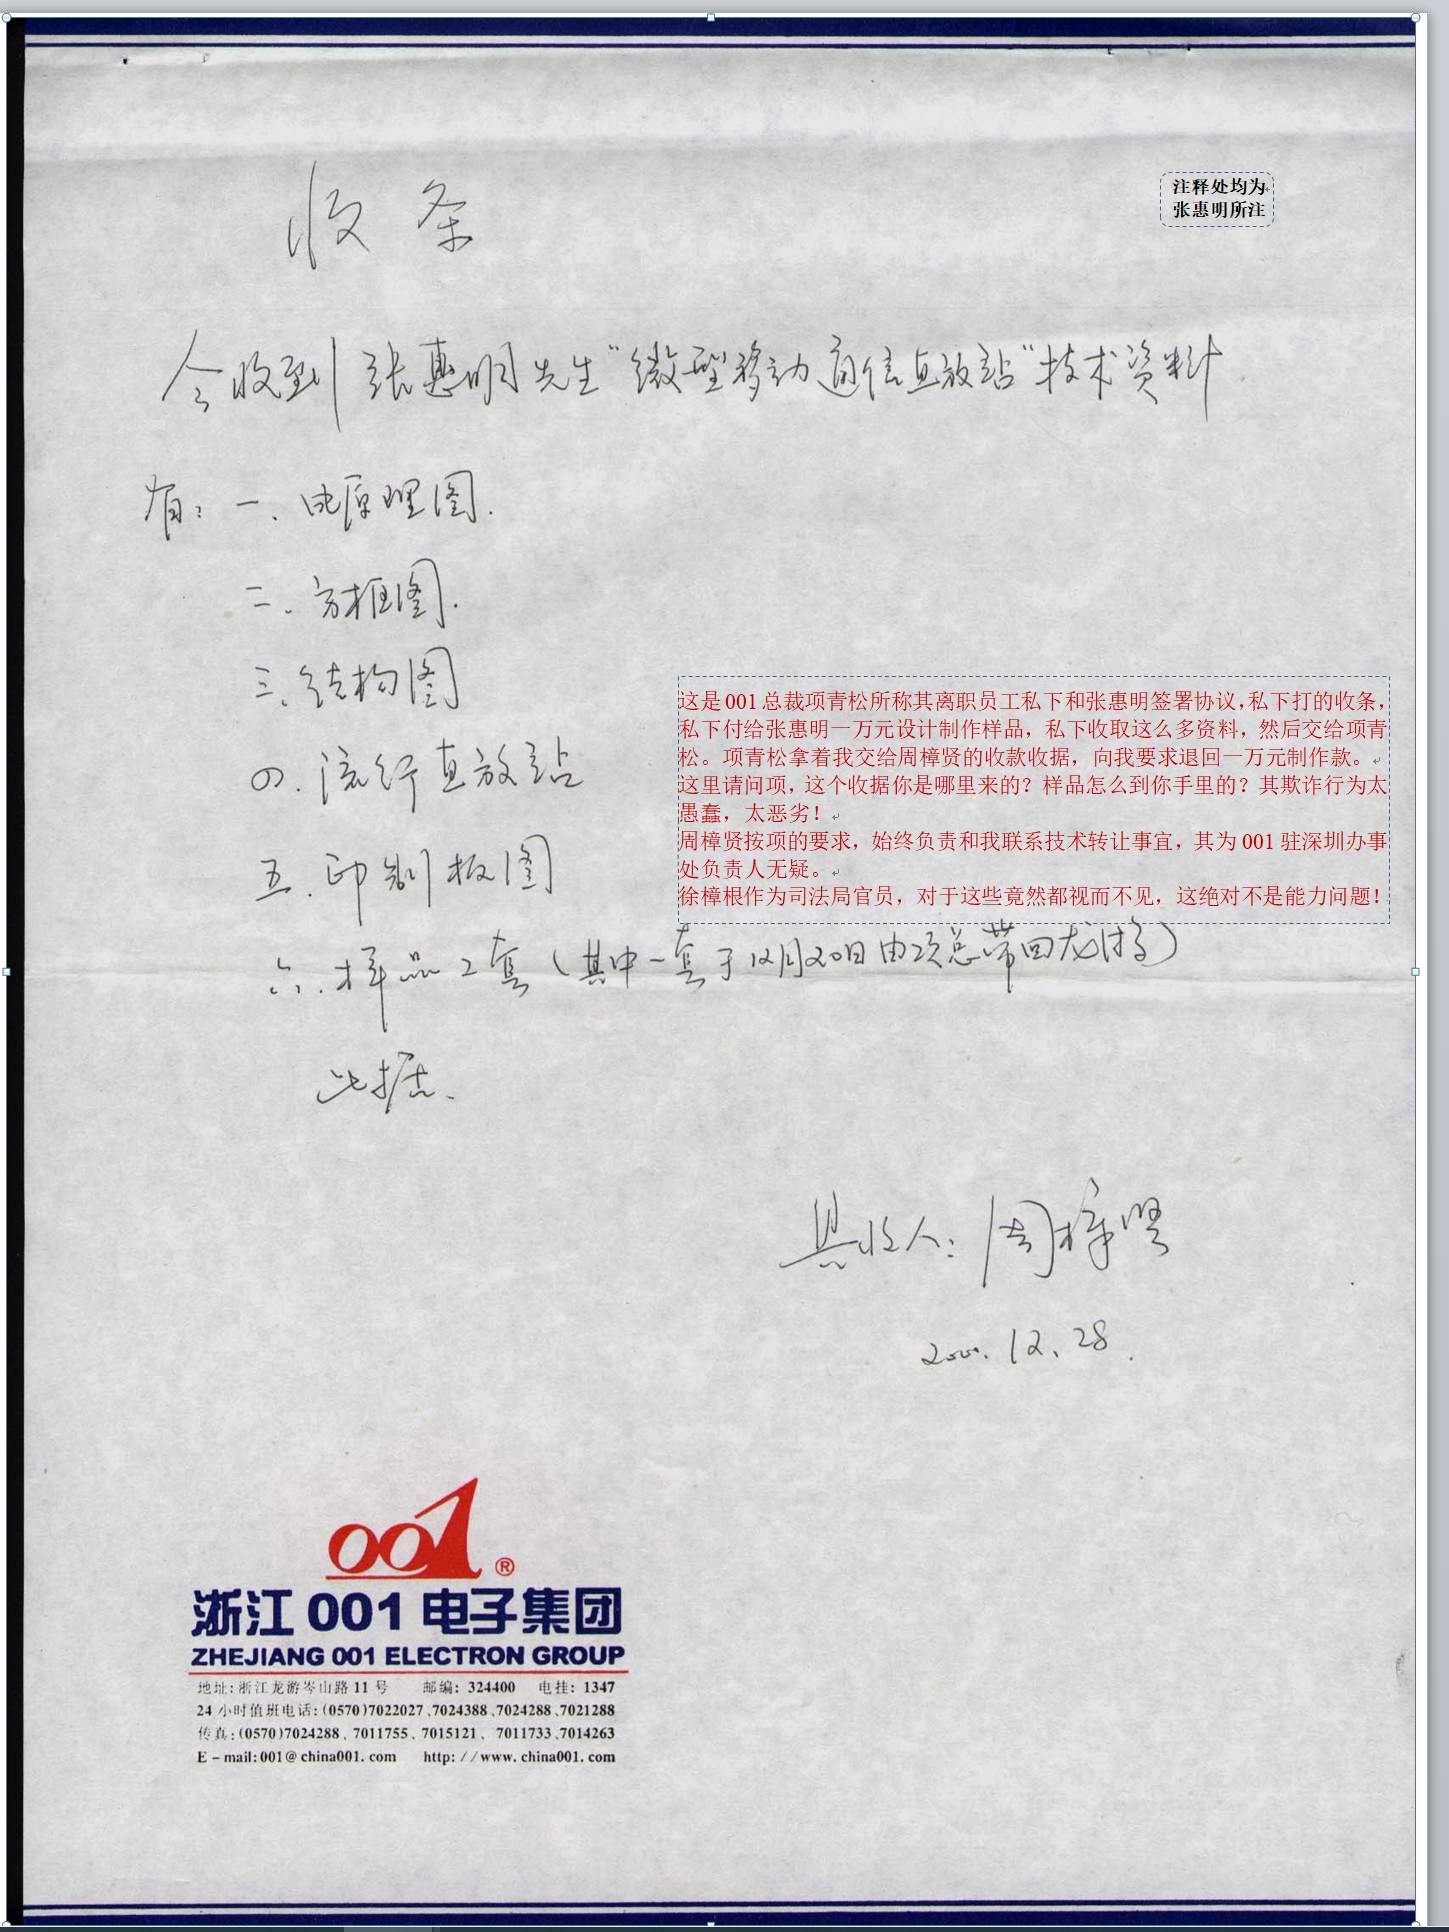 收条
注释处均为
张惠明所注
今收到张惠明先生“微型移动通信直放站”技术资料
有：一、电原理图.
二、方框图.
三、结构图
四、流行直放站
五、印制板图
这是001总裁项青松所称其离职员工私下和张惠明签署协议，私下打的收条，
私下付给张惠明一万元设计制作样品，私下收取这么多资料，然后交给项青
松。项青松拿着我交给周樟贤的收款收据，向我要求退回一万元制作款。
这里请问项，这个收据你是哪里来的？样品怎么到你手里的？其欺诈行为太
愚蠢，太恶劣！
周樟贤按项的要求，始终负责和我联系技术转让事宜，其为001驻深圳办事
处负责人无疑。
徐樟根作为司法局官员，对于这些竟然都视而不见，这绝对不是能力问题！
六、样品2套（其中一套于12月20日由项总带回龙游）
此据.
具收人：周樟贤
2000.12.28.
001®
浙江001电子集团
ZHEJIANG 001 ELECTRON GROUP
地址:浙江龙游岑山路11号 邮编: 324400 电挂: 1347
24小时值班电话:(0570)7022027、7024388、7024288、7021288
传真:(0570)7024288、7011755、7015121、7011733、7014263
E-mail:001@china001.com http://www.china001.com